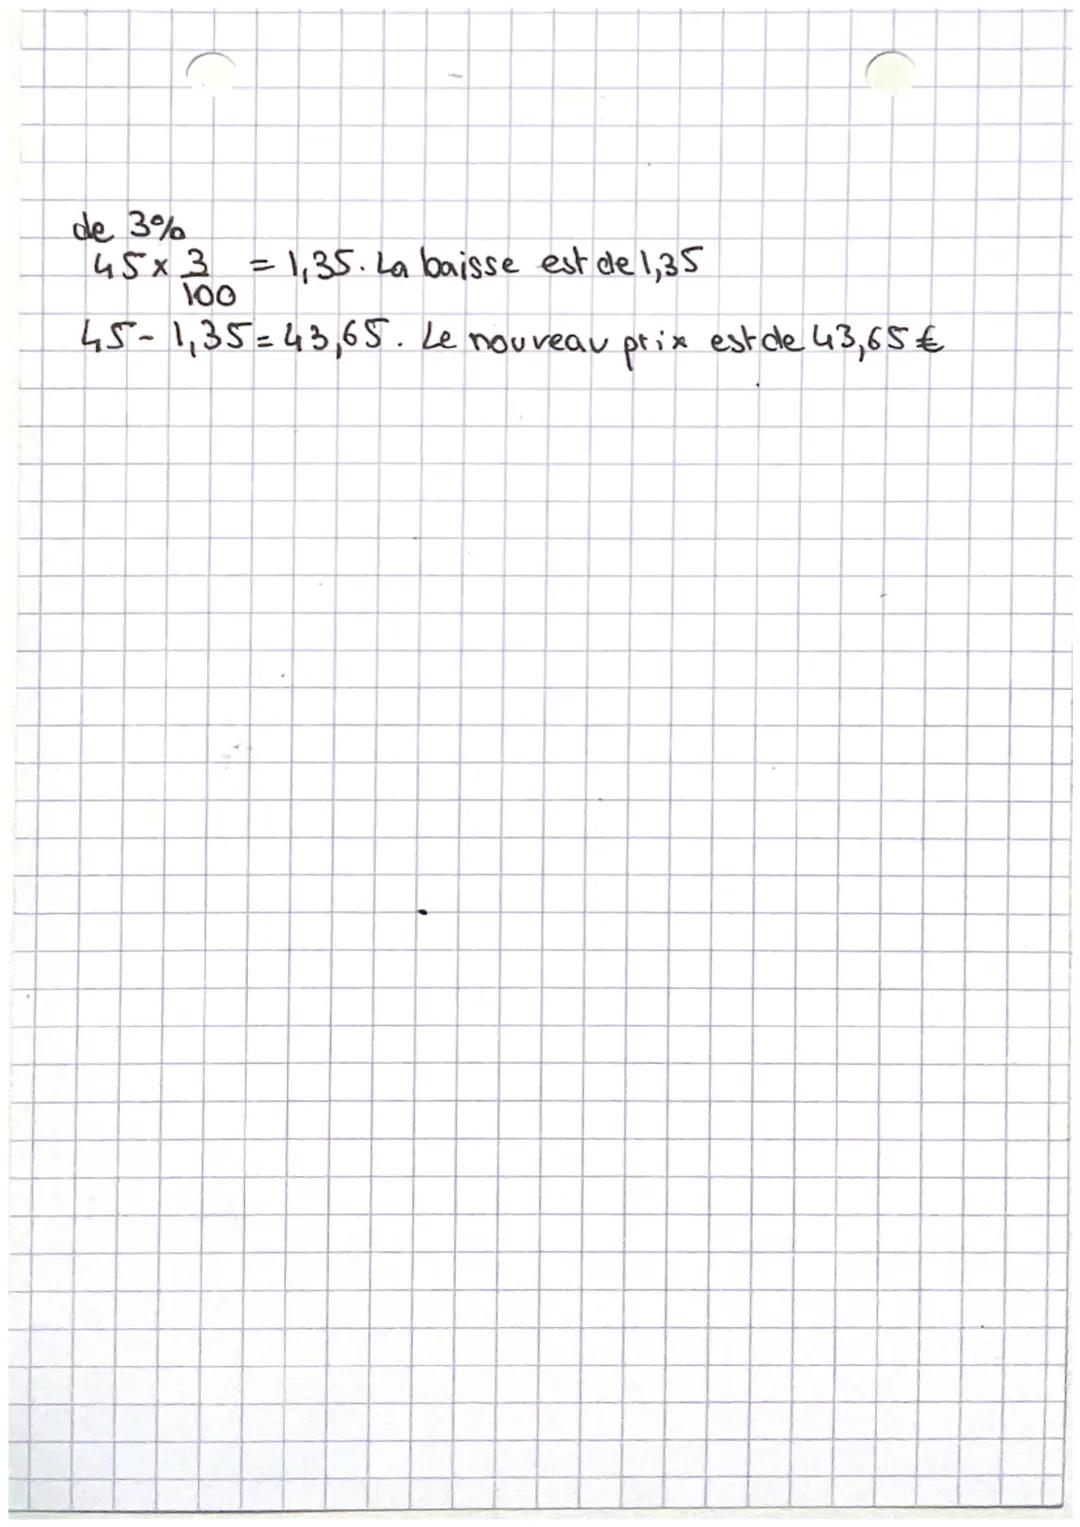 de 3%
45 × 3/100 = 1,35. La baisse est de 1,35
45 - 1,35 = 43,65. Le nouveau prix est de 43,65 €